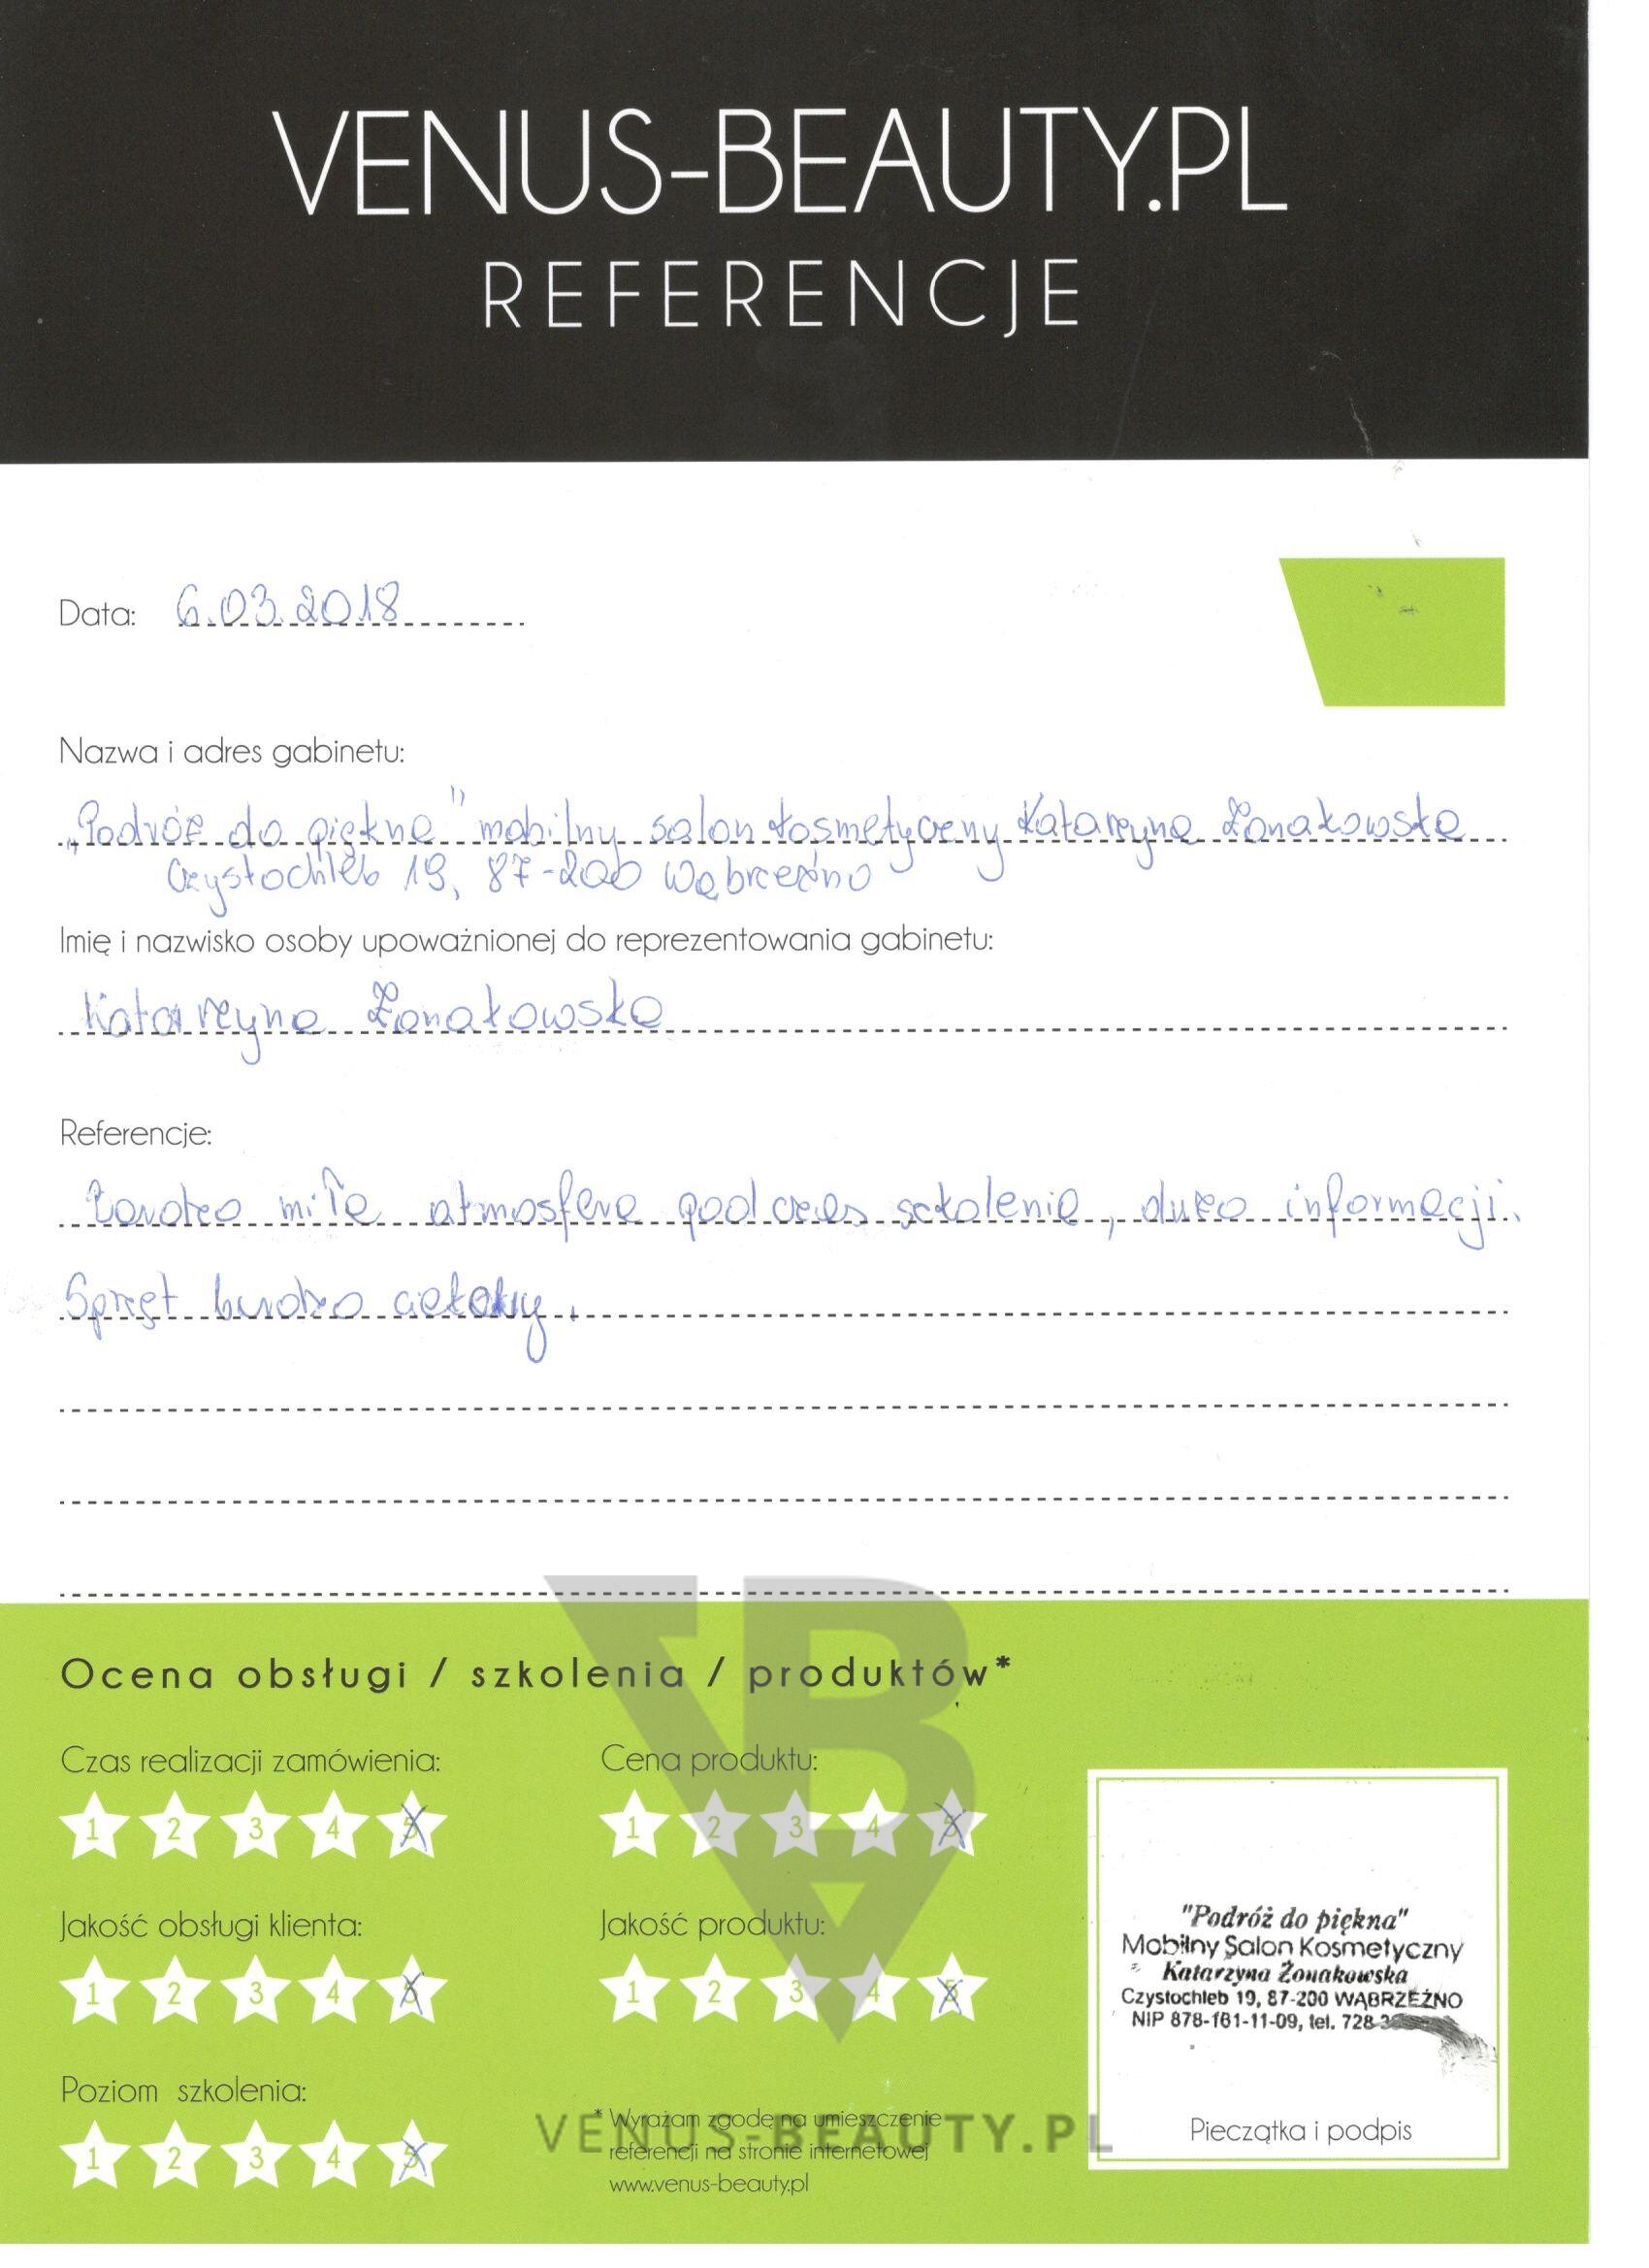 VENUS-BEAUTY.PL
REFERENCJE
Data: 6.03.2018
Nazwa i adres gabinetu:
„Podróż do piękna" mobilny salon kosmetyczny Katarzyna Żonakowska
Czystochleb 19, 87-200 Wąbrzeźno
Imię i nazwisko osoby upoważnionej do reprezentowania gabinetu:
Katarzyna Żonakowska
Referencje:
Bardzo miła atmosfera podczas szkolenia, dużo informacji.
Sprzęt bardzo ciekawy.
Ocena obsługi / szkolenia / produktów*
Czas realizacji zamówienia: Cena produktu:
1 2 3 4 5 1 2 3 4 5
Jakość obsługi klienta: Jakość produktu:
1 2 3 4 5 1 2 3 4 5
"Podróż do piękna"
Mobilny Salon Kosmetyczny
Katarzyna Żonakowska
Czystochleb 19, 87-200 WĄBRZEŹNO
NIP 878-161-11-09, tel. 728
Poziom szkolenia:
1 2 3 4 5
* Wyrażam zgodę na umieszczenie
referencji na stronie internetowej
www.venus-beauty.pl
Pieczątka i podpis
VENUS-BEAUTY.PL